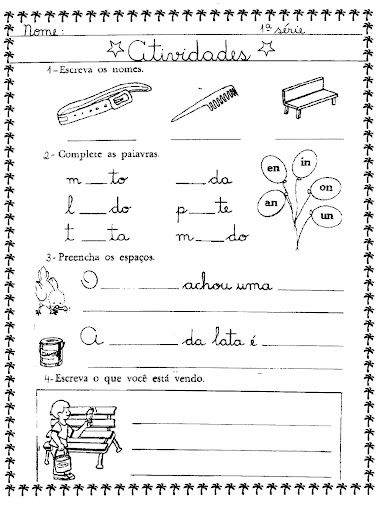 Nome: 1ª série
Atividades
1- Escreva os nomes.
2- Complete as palavras.
en in
m ___ to ___ da
on
l ___ do p ___ te
an un
t ___ ta m ___ do
3- Preencha os espaços.
O ___ achou uma ___
A ___ da lata é ___
4- Escreva o que você está vendo.